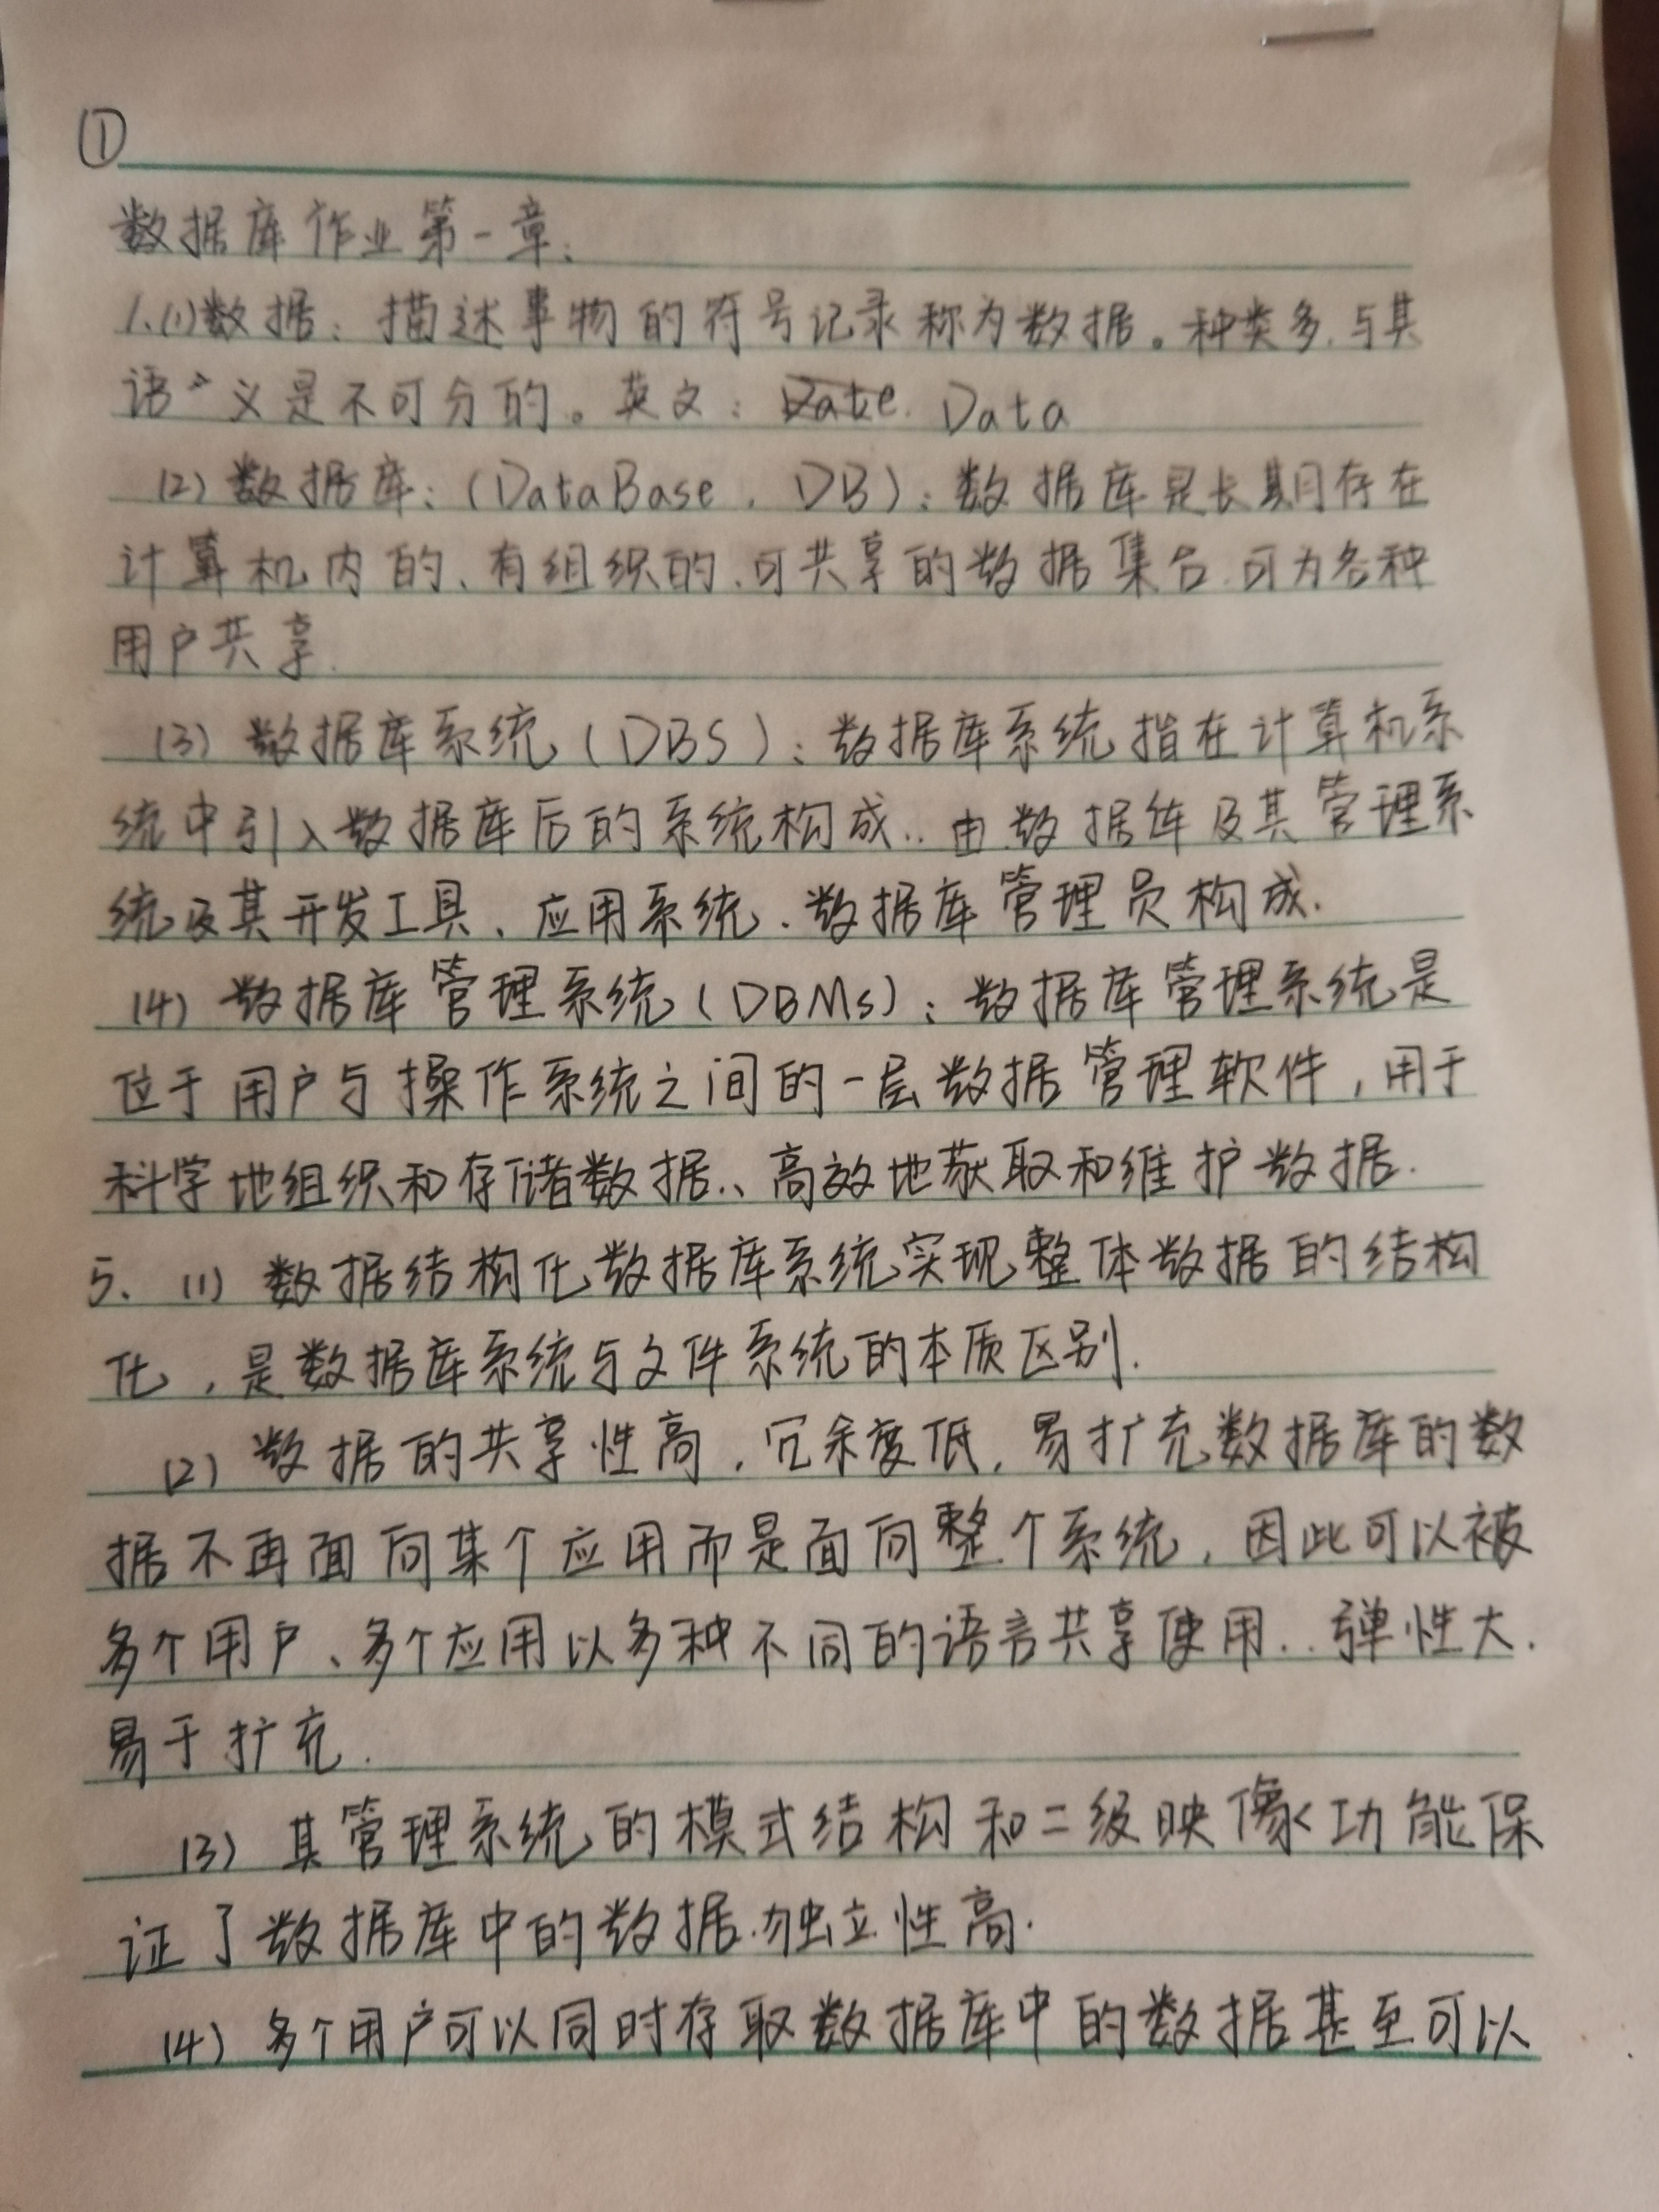 ①
数据库作业第一章:
1.(1)数据:描述事物的符号记录称为数据。种类多.与其
语义是不可分的。英文: Date. Data
(2)数据库:(DataBase, DB):数据库是长期存在
计算机内的、有组织的、可共享的数据集合.可为各种
用户共享.
(3)数据库系统(DBS):数据库系统指在计算机系
统中引入数据库后的系统构成..由数据库及其管理系
统及其开发工具、应用系统、数据库管理员构成.
(4)数据库管理系统(DBMs):数据库管理系统是
位于用户与操作系统之间的一层数据管理软件,用于
科学地组织和存储数据.、高效地获取和维护数据.
5. (1)数据结构化数据库系统实现整体数据的结构
化,是数据库系统与文件系统的本质区别.
(2)数据的共享性高,冗余度低,易扩充数据库的数
据不再面向某个应用而是面向整个系统,因此可以被
多个用户、多个应用以多种不同的语言共享使用..弹性大.
易于扩充.
(3)其管理系统的模式结构和二级映像功能保
证了数据库中的数据.独立性高.
(4)多个用户可以同时存取数据库中的数据甚至可以